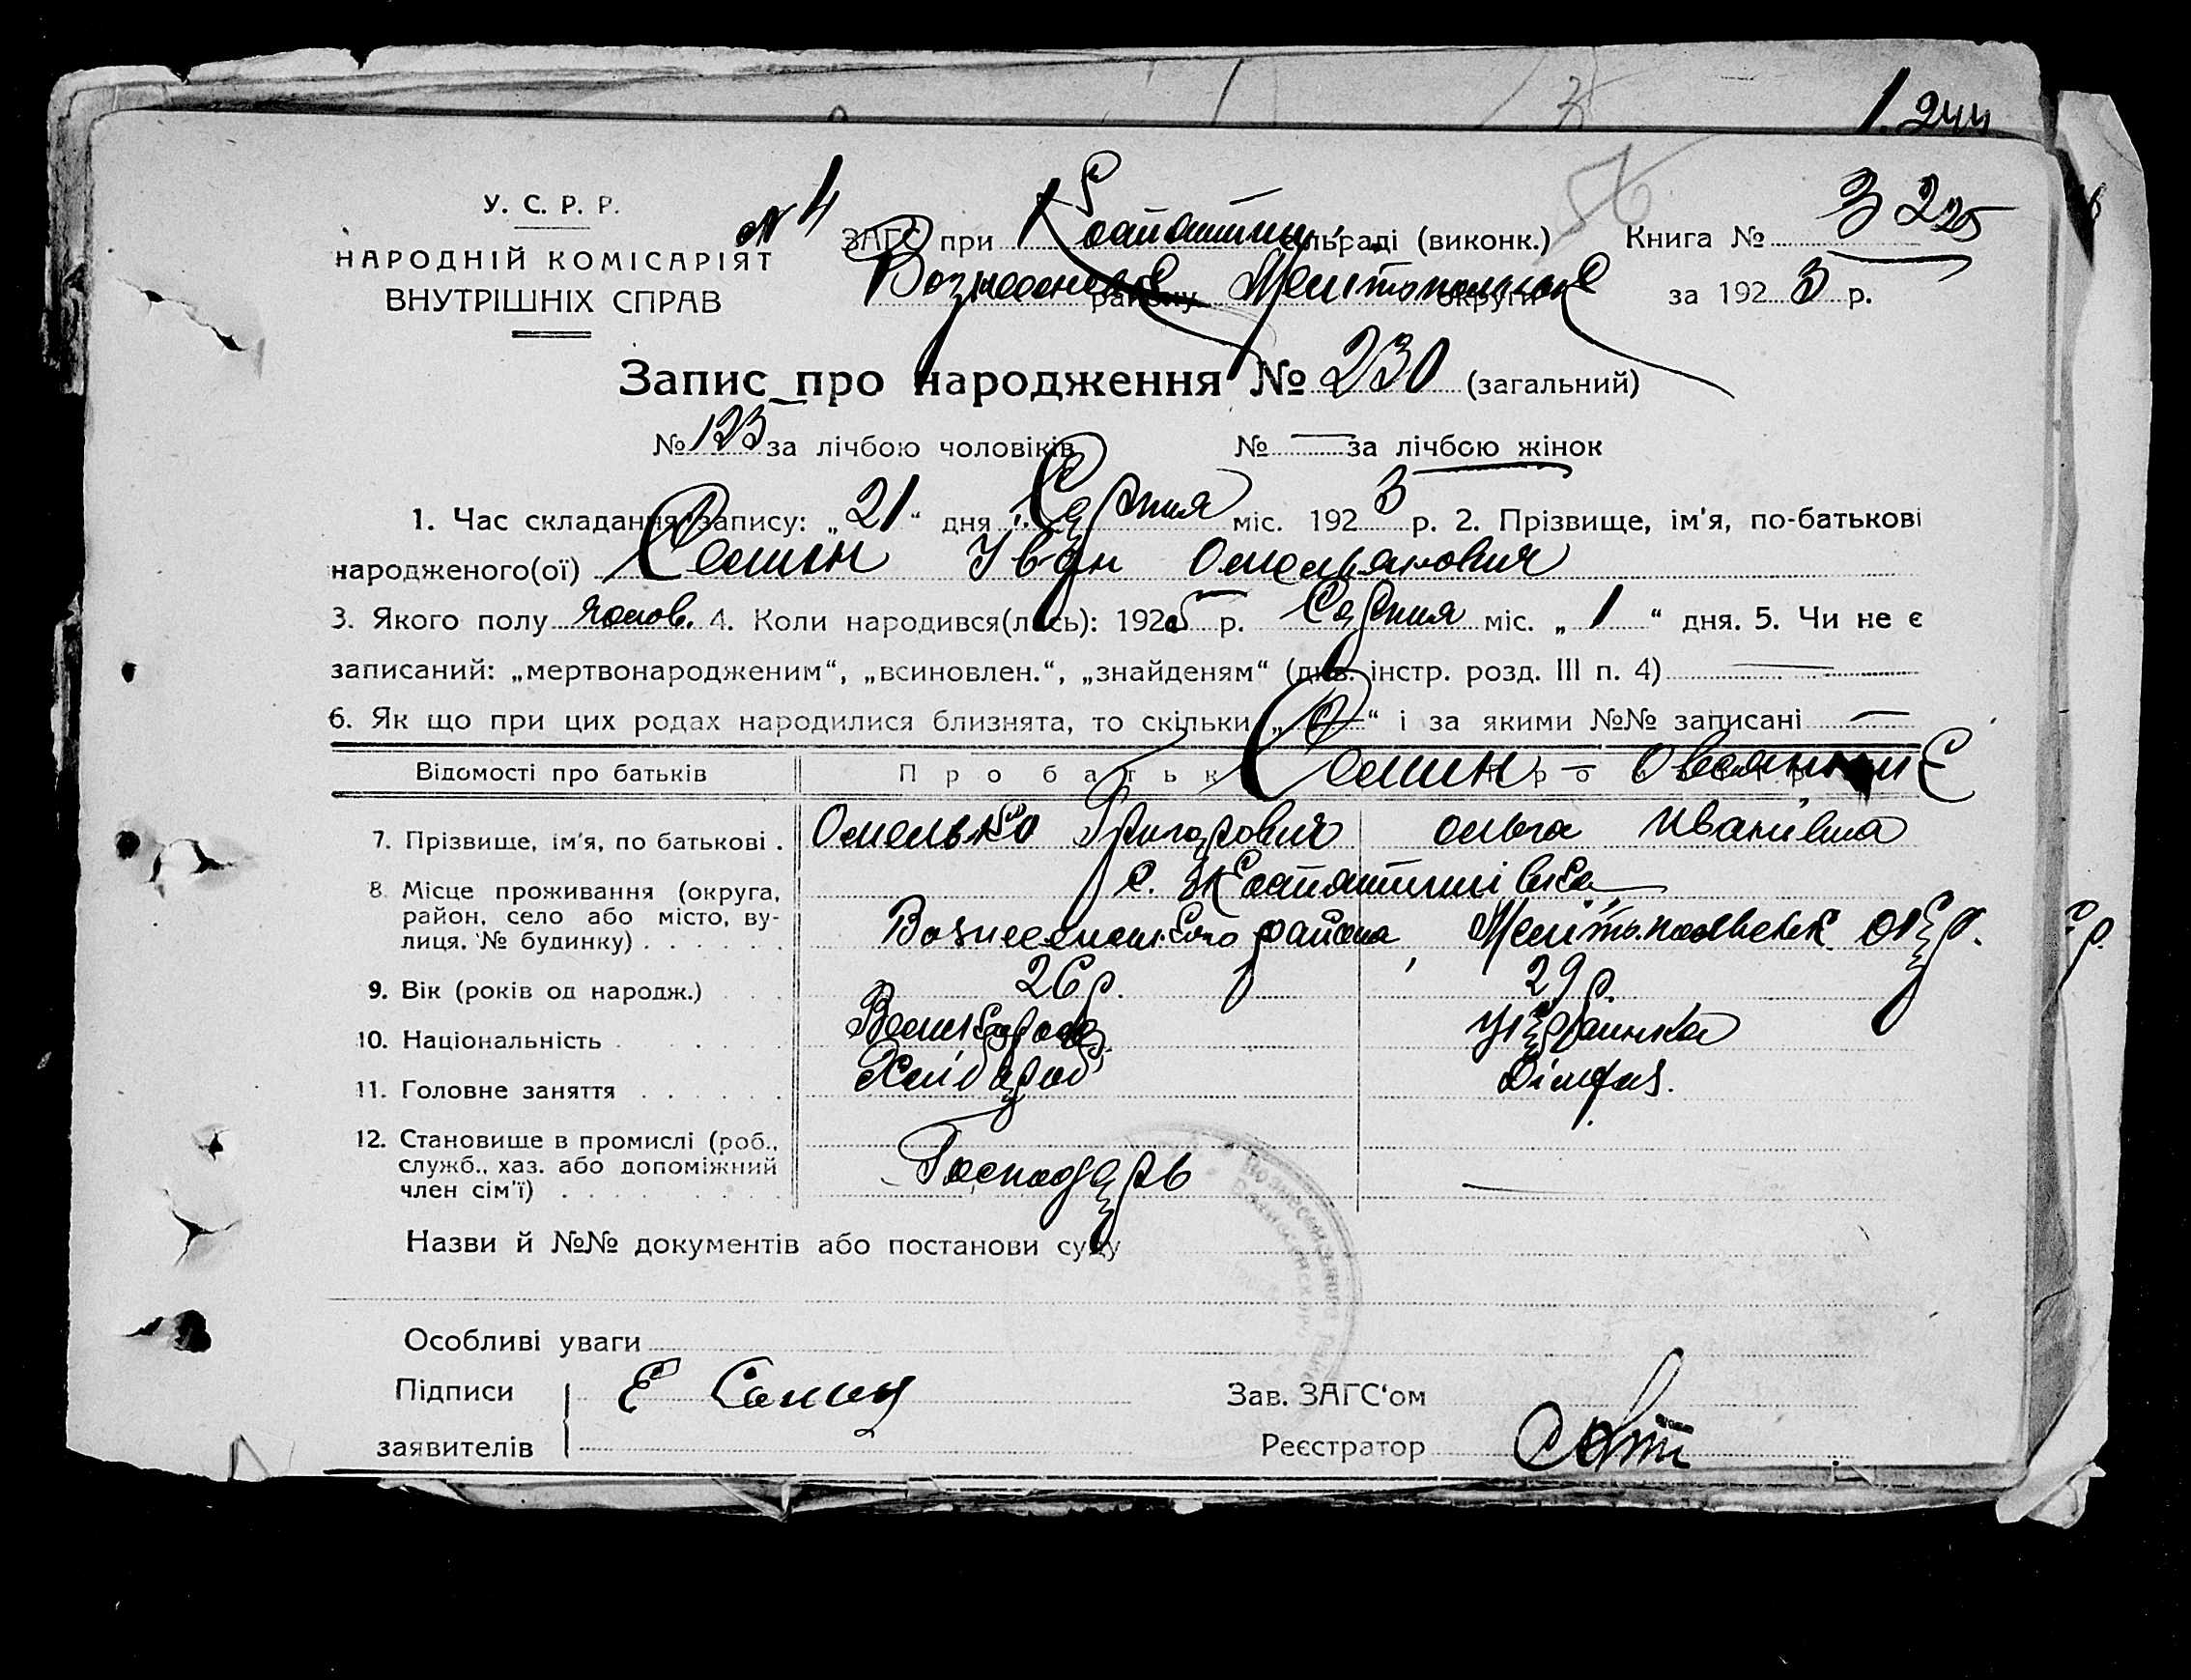 1. 244
56
У. С. Р. Р.
НАРОДНІЙ КОМІСАРІЯТ
ВНУТРІШНІХ СПРАВ
№ 4 ЗАГС при сільраді (виконк.) Книга № 3 225
Вознесенськ району Мелітопольськ округи за 1925 р.
Запис про народження № 230 (загальний)
№ 123 за лічбою чоловіків № — за лічбою жінок
1. Час складання запису: „21“ дня Серпня міс. 1925 р. 2. Прізвище, ім'я, по-батькові
народженого(ої) Семин Іван Омельянович
3. Якого полу чолов. 4. Коли народився(лась): 1925 р. Серпня міс. „1“ дня. 5. Чи не є
записаний: „мертвонародженим“, „всиновлен.“, „знайденям“ (див. інстр. розд. III п. 4) —
6. Як що при цих родах народилися близнята, то скільки „ “ і за якими №№ записані —
Відомості про батьків Про батька Семин —
7. Прізвище, ім'я, по батькові . Омелько Григорович Ольга Иванівна
8. Місце проживання (округа, район, село або місто, вулиця, № будинку) . . . . . . с.
Вознесенського району, Мелітопольськ окр.
9. Вік (років од народж.) . . . 26 р. 29 р.
10. Національність . . . . . . Великорос Українка
11. Головне заняття . . . . . . Хлібороб
12. Становище в промислі (роб., служб., хаз. або допоміжний член сім'ї) . . . . . . . . . Господарь —
Назви й №№ документів або постанови суду
Особливі уваги
Підписи Е Семин Зав. ЗАГС'ом
заявителів Реєстратор